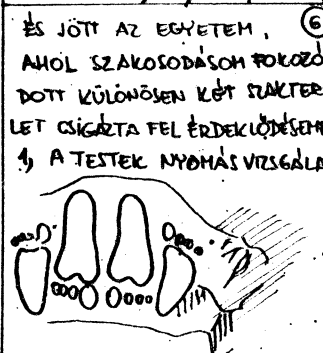 6
ÉS JÖTT AZ EGYETEM,
AHOL SZAKOSODÁSOM FOKOZÓ
DOTT KÜLÖNÖSEN KÉT SZAKTER
LET CSIGÁZTA FEL ÉRDEKLŐDÉSEM
1, A TESTEK NYOMÁSVIZSGÁLA